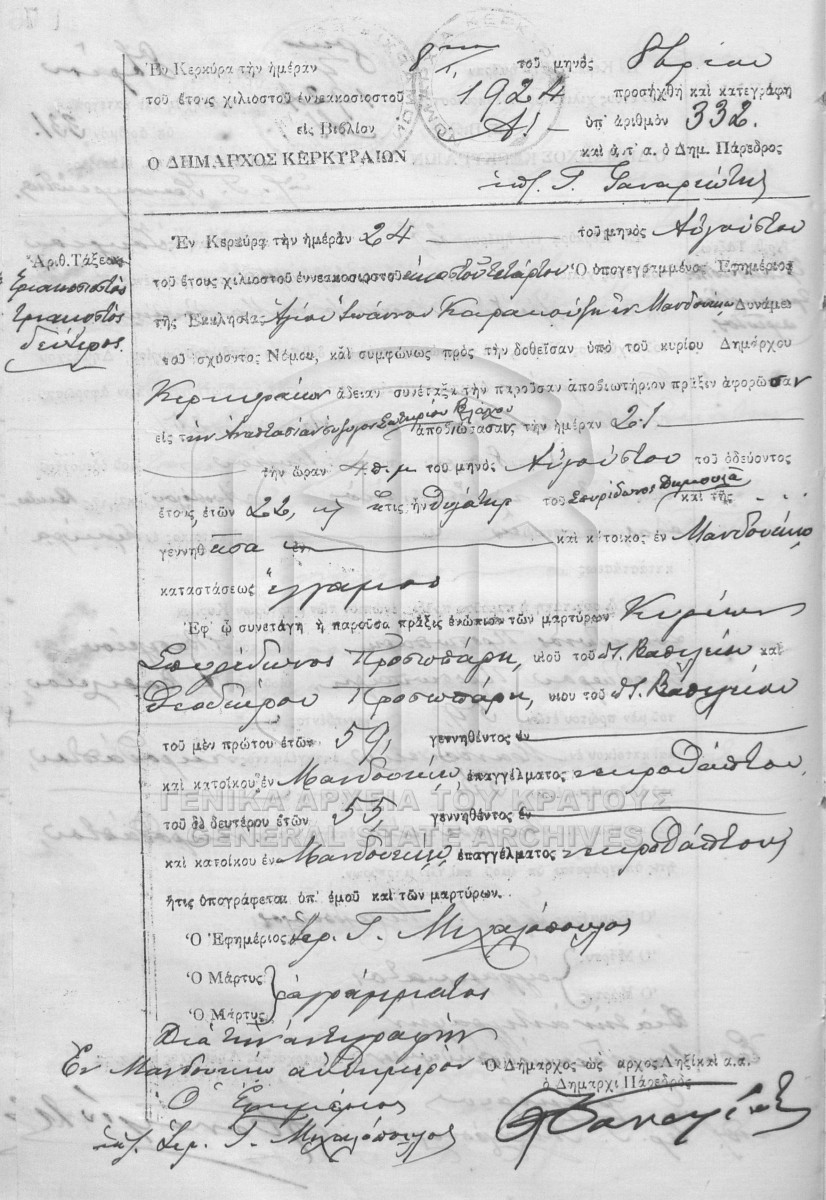 Ἐν Κερκύρᾳ τὴν ἡμέραν 8ην τοῦ μηνὸς 8βρίου
τοῦ ἔτους χιλιοστοῦ ἐννεακοσιοστοῦ 1924 προσήχθη καὶ κατεγράφη
εἰς Βιβλίον Α! ὑπ' ἀριθμὸν 332.
Ο ΔΗΜΑΡΧΟΣ ΚΕΡΚΥΡΑΙΩΝ καὶ ἀ.τ.α. ὁ Δημ. Πάρεδρος
Γ.
Ἀρ.θ. Τάξεως
τριακοσιοστὸς
τριακοστὸς
δεύτερος.
Ἐν Κερκύρᾳ τὴν ἡμέραν 24 τοῦ μηνὸς Αὐγούστου
τοῦ ἔτους χιλιοστοῦ ἐννεακοσιοστοῦ εἰκοστοῦ τετάρτου Ὁ ὑπογεγραμμένος Ἐφημέριος
τῆς Ἐκκλησίας Ἁγίου Ἰωάννου ἐν Μανδουκίῳ Δυνάμει
τοῦ ἰσχύοντος Νόμου, καὶ συμφώνως πρὸς τὴν δοθεῖσαν ὑπὸ τοῦ κυρίου Δημάρχου
Κερκυραίων ἄδειαν συνέταξα τὴν παροῦσαν ἀποβιωτήριον πρᾶξιν ἀφορῶσαν
εἰς τὴν Ἀναστασίαν σύζυγον Σωτηρίου Βλάχου ἀποβιώσασαν τὴν ἡμέραν 21
τὴν ὥραν 4 π.μ. τοῦ μηνὸς Αὐγούστου τοῦ ὁδεύοντος
ἔτους, ἐτῶν 22, ἥτις ἦν θυγάτηρ τοῦ Σπυρίδωνος καὶ τῆς
γεννηθεῖσα ἐν καὶ κάτοικος ἐν Μανδουκίῳ
καταστάσεως ἔγγαμου
Ἐφ' ᾧ συνετάγη ἡ παροῦσα πρᾶξις ἐνώπιον τῶν μαρτύρων Κυρίων
Σπυρίδωνος Προσωπάρη, υἱοῦ τοῦ Βασιλείου καὶ
Θεοδώρου Προσωπάρη, υἱοῦ τοῦ Βασιλείου
τοῦ μὲν πρώτου ἐτῶν 59, γεννηθέντος ἐν
καὶ κατοίκου ἐν Μανδουκίῳ, ἐπαγγέλματος νεκροθάπτου.
τοῦ δὲ δευτέρου ἐτῶν 55, γεννηθέντος ἐν
καὶ κατοίκου ἐν Μανδουκίῳ, ἐπαγγέλματος νεκροθάπτου
ἥτις ὑπογράφεται ὑπ' ἐμοῦ καὶ τῶν μαρτύρων.
Ὁ Ἐφημέριος Ἱερ. Γ. Μιχαλόπουλος
Ὁ Μάρτυς
Ὁ Μάρτυς ἀγράμματος
Διὰ τὴν ἀντιγραφὴν
Ἐν Μανδουκίῳ αὐθημερόν
Ὁ Δήμαρχος ὡς αρχος Ληξίας κ.α.α.
ὁ Δημαρχ. Πάρεδρος
Ὁ Ἐφημέριος
Ἱερ. Γ. Μιχαλόπουλος
ΓΕΝΙΚΑ ΑΡΧΕΙΑ ΤΟΥ ΚΡΑΤΟΥΣ
GENERAL STATE ARCHIVES